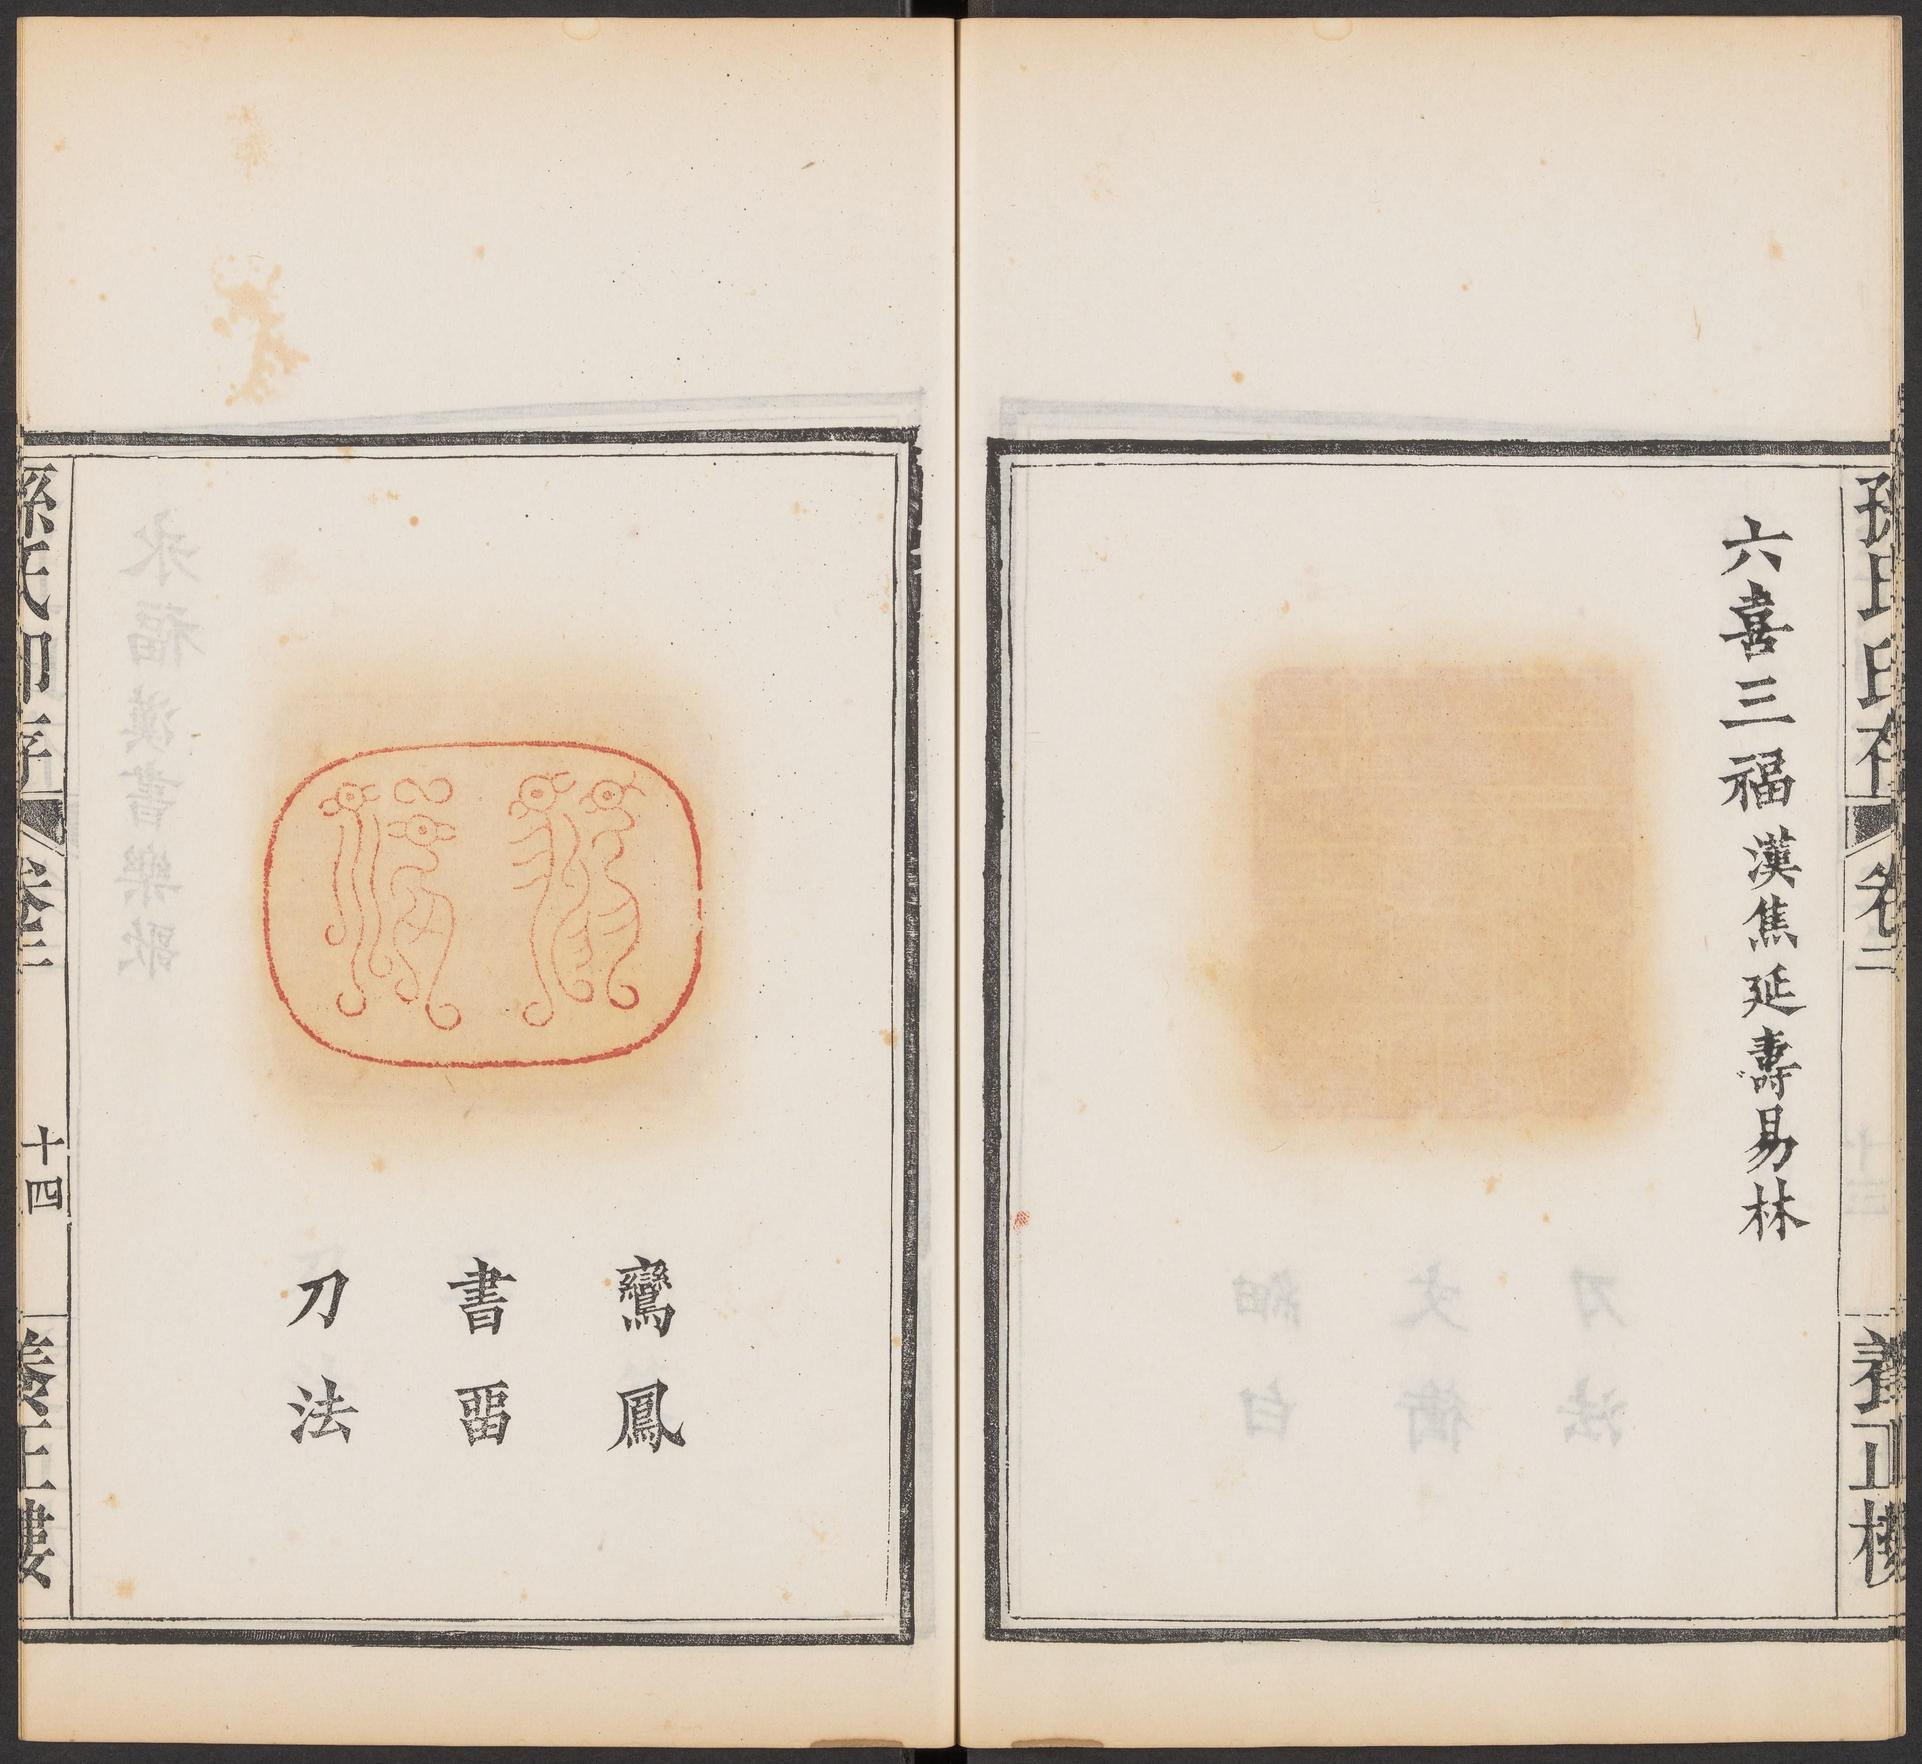 孫氏印存
卷二
養正樓
六喜三福漢焦延壽易林
鸞鳳
書畱
刀法
孫氏印存
卷二
十四
養正樓